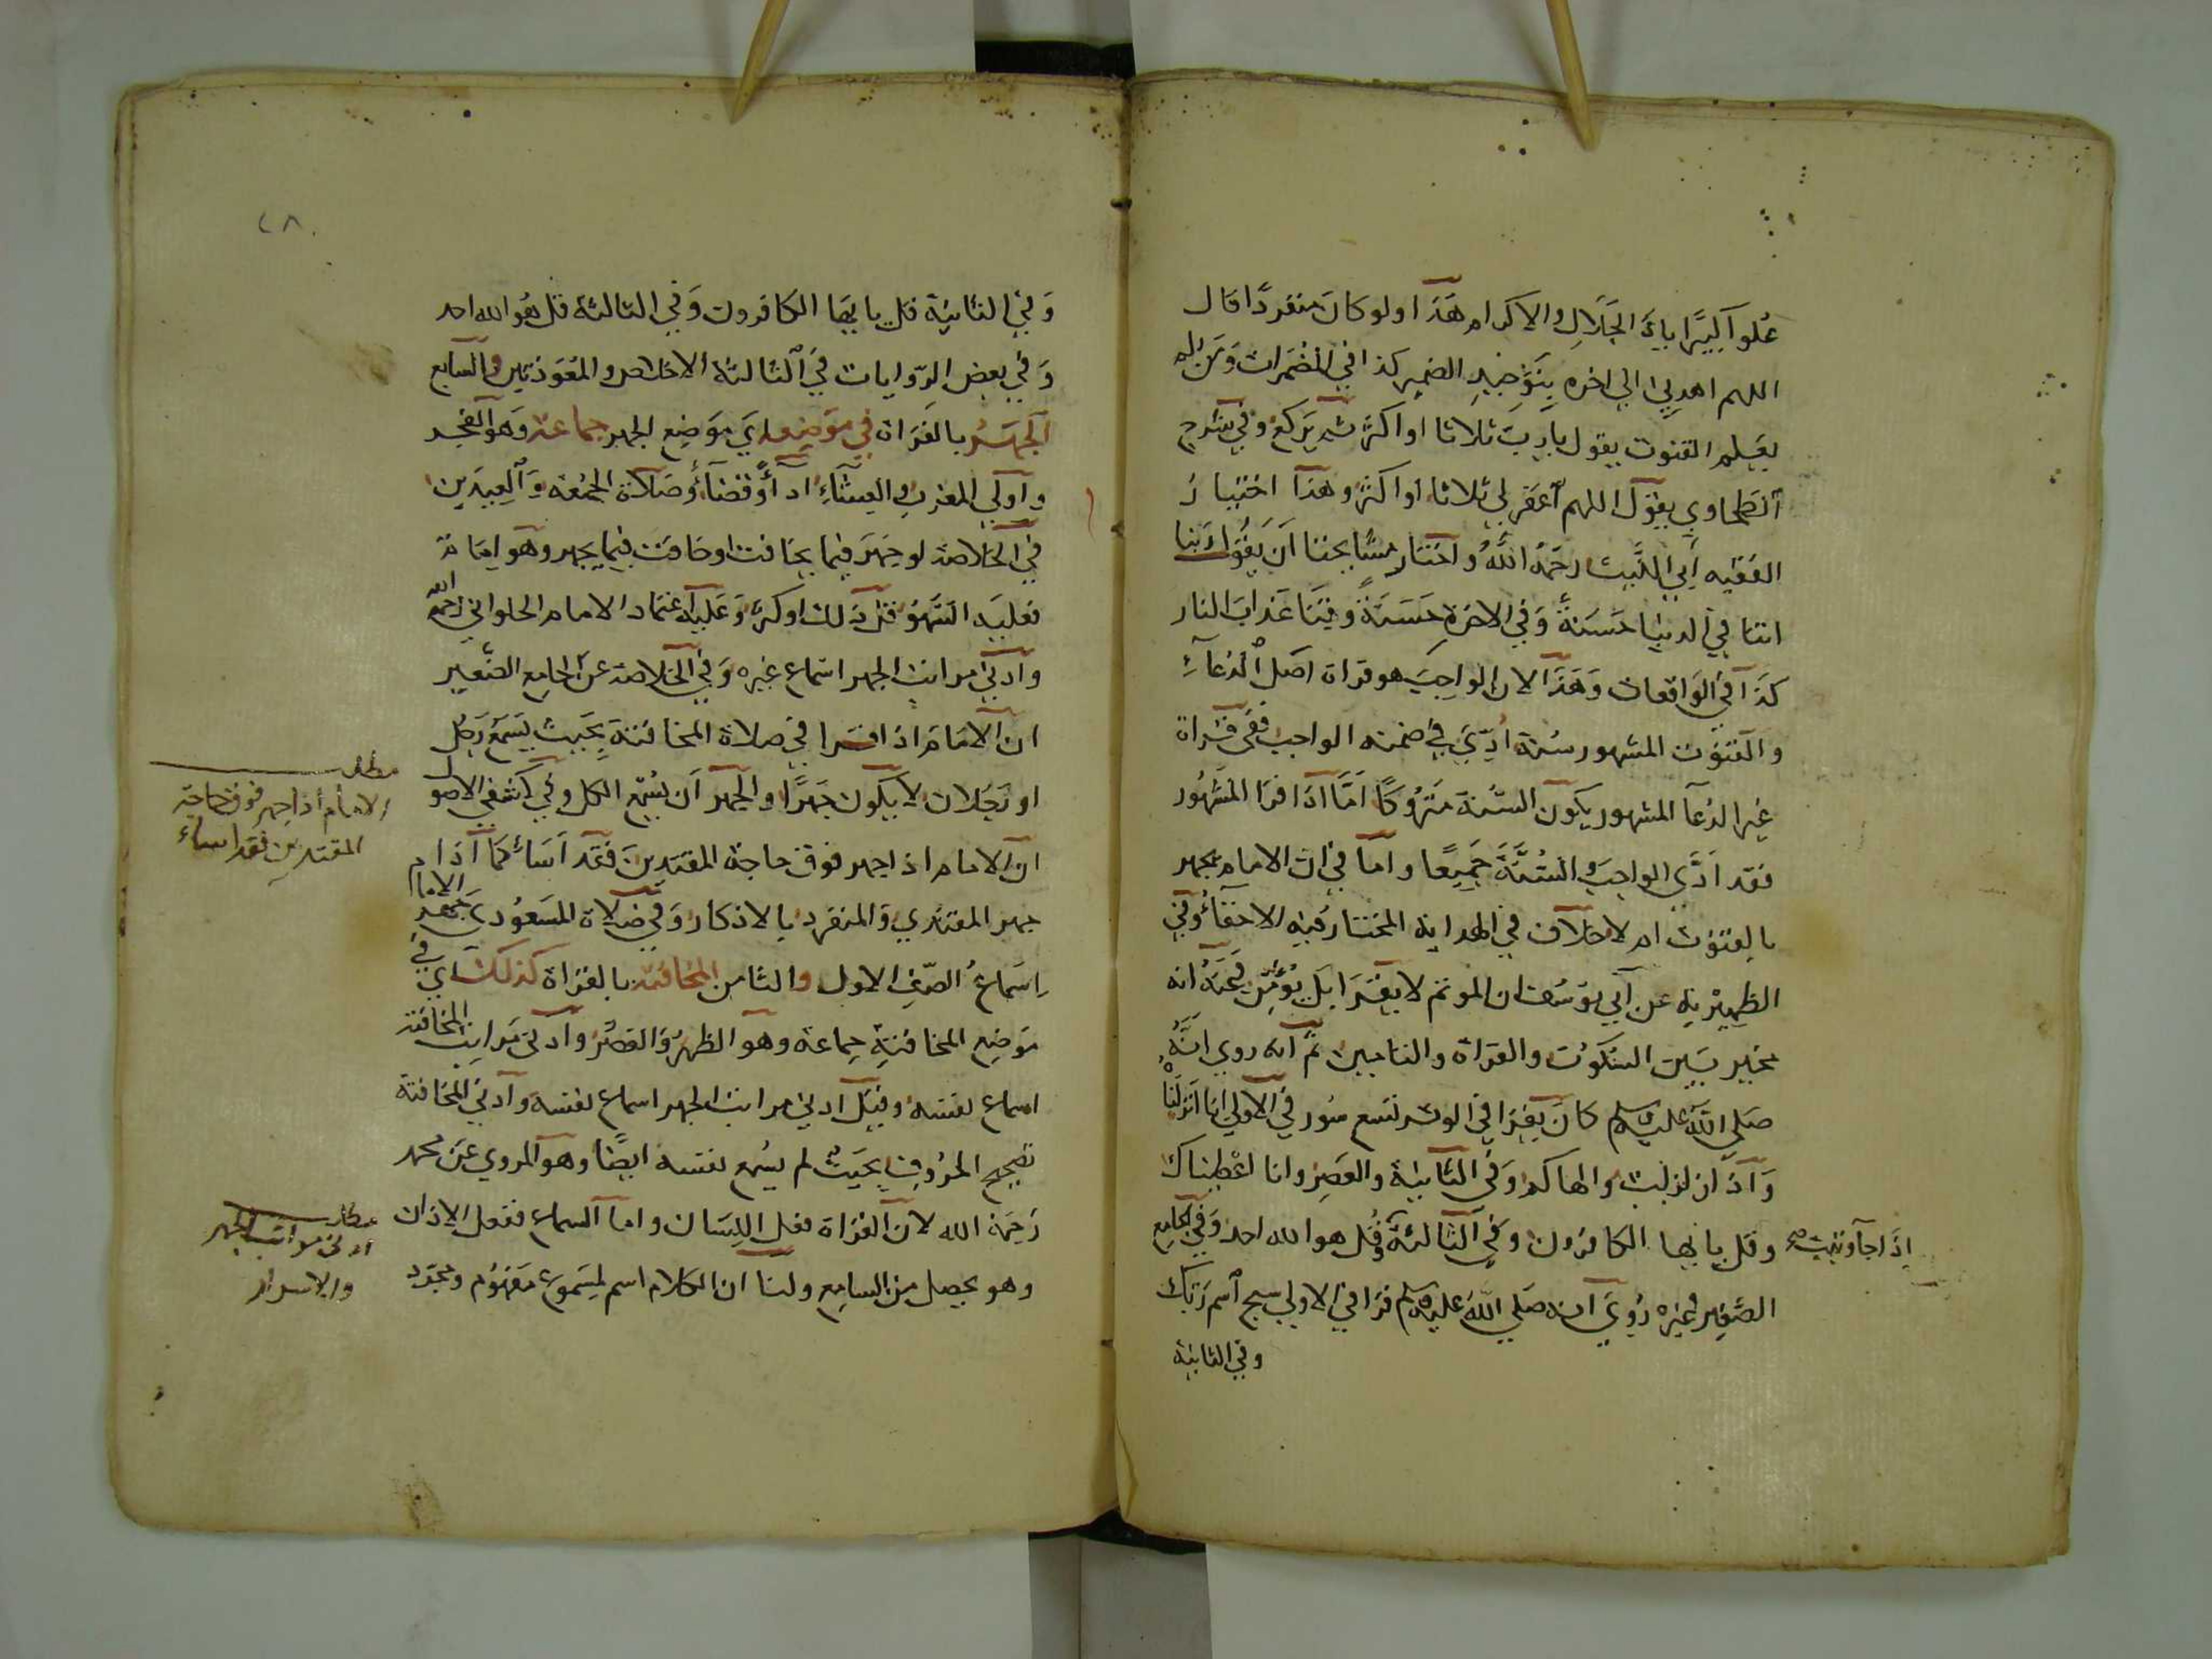 علوا كبيرا ياذا الجلال والاكرام هذا ولو كان منفردا قال
اللهم اهدني الي اخره بتوحيد الضمير كذا في المضمرات ومن لم
يعلم القنوت يقول يا رب ثلاثا او اكثر ثم يركع وفي شرح
الطحاوي يقول اللهم اغفر لي ثلاثا او اكثر وهذا اختيار
الفقيه ابي الليث رحمه الله واختار مشايخنا ان يقول ربنا
اتنا في الدنيا حسنة وفي الاخرة حسنة وقنا عذاب النار
كذا في الواقعات وهذا لان الواجب هو قراة اصل الدعاء
والقنوت المشهور سنة ادي في ضمنه الواجب ففي قراة
غير الدعا المشهور يكون السنة متروكا اما اذا قرا المشهور
فقد ادي الواجب والسنة جميعا واما في ان الامام يجهر
بالقنوت ام لا خلاف في الهداية المختار فيه الاخفاء وفي
الظهيرية عن ابي يوسف ان الموتم لا يقرا بل يؤمن محمد انه
مخير بين السكوت والقراة والتامين ثم انه روي انه
صلى الله عليه وسلم كان يقرا في الوتر تسع سور في الاولي انا انزلنا
واذا زلزلت والهاكم وفي الثانية والعصر وانا اعطيناك
اذا جآ وتبت صح
وقل يا ايها الكافرون وفي الثالثة وقل هو الله احد وفي الجامع
الصغير وغيره روي انه صلي الله عليه وسلم قرا في الاولي سبح اسم ربك
وفي الثانية
٢٨
وفي الثانية قل يا ايها الكافرون وفي الثالثة قل هو الله احد
وفي بعض الروايات في الثالثة الاخلاص والمعوذتين والسابع
الجهر بالقراة في موضعه اي موضع الجهر جماعة وهو الفجر
واولي المغرب والعشاء اداء وقضاء وصلاة الجمعة والعيدين
في الخلاصة لو جهر فيما يخافت او خافت فيما يجهر وهو امامة
فعليه السهو قل ذلك او كثر وعليه اعتماد الامام الحلواني رحمه الله
وادني مراتب الجهر اسماع غيره وفي الخلاصة عن الجامع الصغير
ان الامام اذا قرا في صلاة المخافتة بحيث يسمع رجل
او رجلان لا يكون جهرا والجهر ان يسمع الكل وفي كشف الاصول
مطلب
الامام اذا جهر فوق حاجة
المقتدين فقد اساء
ان الامام اذا جهر فوق حاجة المقتدين فقد اساء كما اذا
جهر المقتدي والمنفرد بالاذكار وفي صلاة المسعودي جهد الامام
اسماع الصف الاول والثامن المخافتة بالقراة كذلك اي في
موضع المخافتة جماعة وهو الظهر والعصر وادني مراتب المخافتة
اسماع نفسه وقيل ادني مراتب الجهر اسماع نفسه وادني المخافتة
تصحيح الحروف بحيث لم يسمع نفسه ايضا وهو المروي عن محمد
رحمة الله لان القراة فعل اللسان واما السماع ففعل الاذان
مطلب
ادني مراتب الجهر
والاسرار
وهو يحصل من السامع ولنا ان الكلام اسم لمسموع مفهوم ومجرد